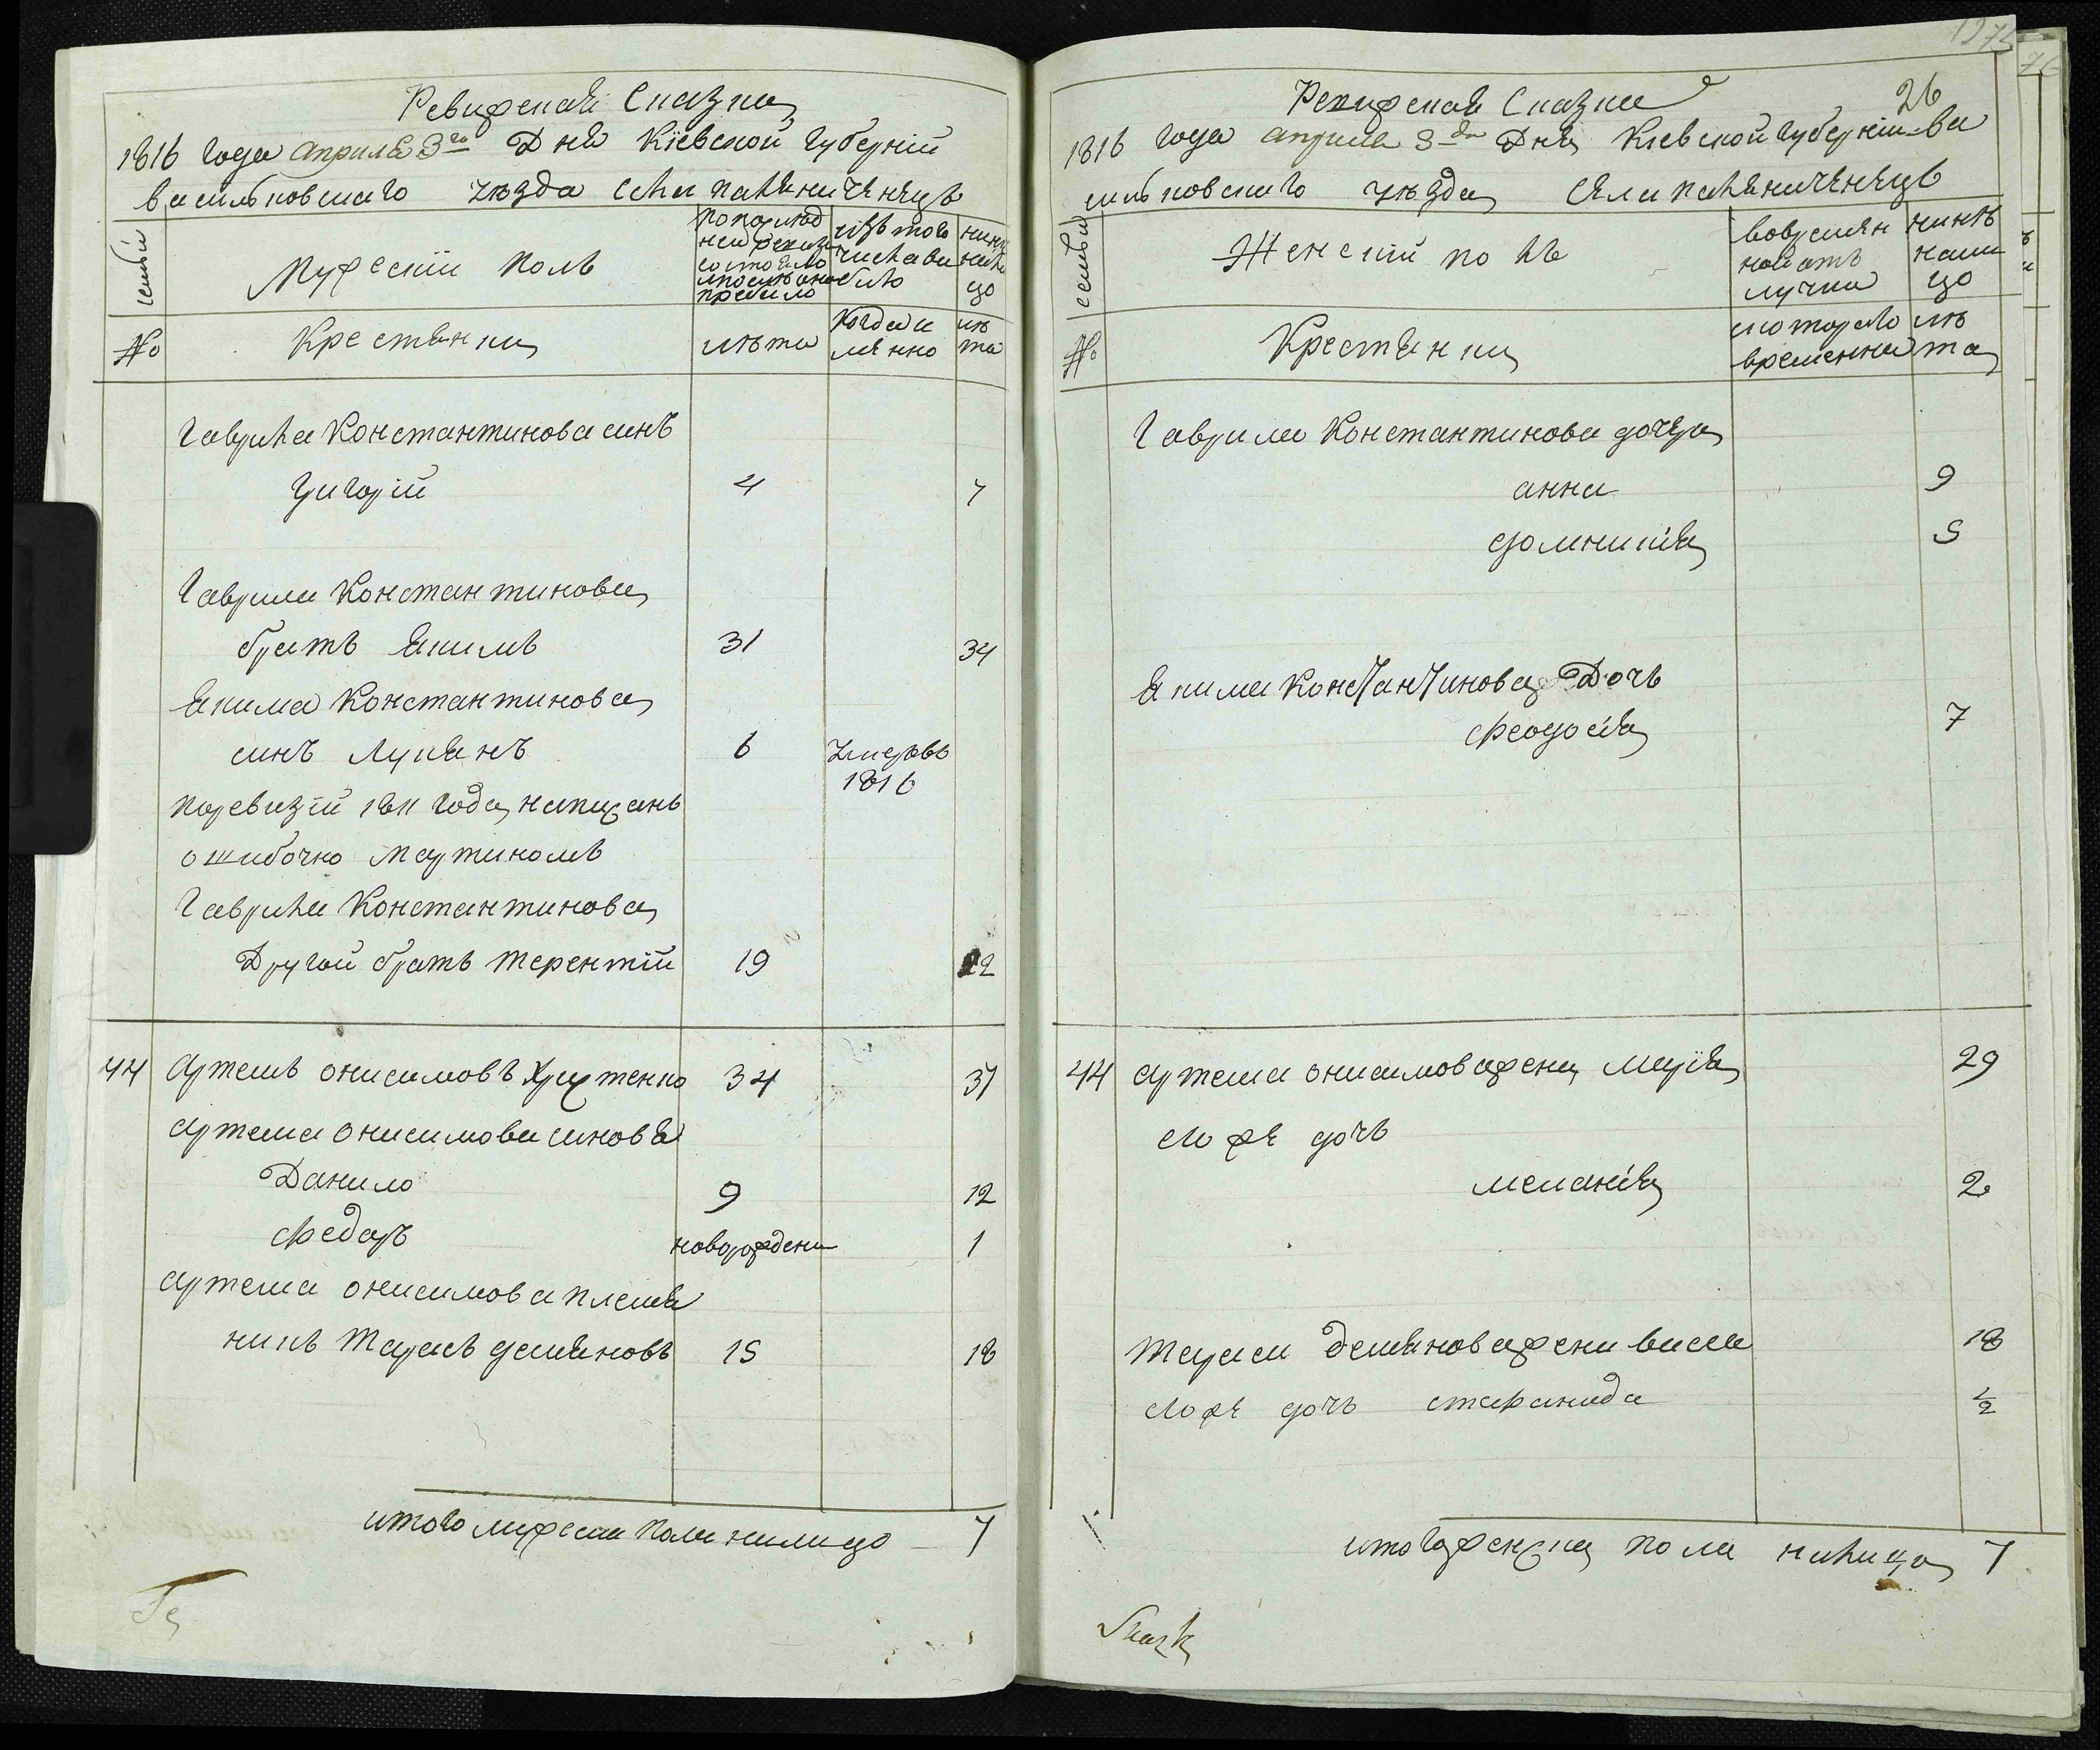 Ревизская Сказка
1816 года априля 3го Дня Кіевской Губерніи
василковскаго уезда села паляниченецъ
семьи
мужескій полъ
по послед
ней ревизіи
состояло
и после оной
прибыло
изъ того
числа вы
было
нине
нали
цо
№
Крестяни
лѣта
когда и
менно
лѣ
та
Гаврила Константинова синъ
Григорій 4 7
Гаврила Константинова
братъ Якимъ 31 34
Якима Константинова
синъ Лукянъ 6 умеръвъ
1816
поревизіи 1811 года написанъ
ошибочно Мартиномъ
Гаврила Константинова
Другой братъ терентій 19 22
44 артемъ онисимовъ 34 37
артема онисимова синовя
Данило 9 12
Федоръ новорожденъ 1
артема онисимова племя
никъ тарасъ демяновъ 15 18
итого мужеска пола налицо 7
1974
26
Ревизская Сказка
1816 года априля 3го Дня Кіевской губерніи ва
силковскаго уезда села паляниченецъ
семьи
Женскій полъ
вовремян
ной отъ
лучки
нинѣ
нали
цо
№
Крестянки
скоторого
времени
лѣ
та
Гаврила Константинова дочеря
анна 9
домникія 5
Якима Константинова Дочь
феодосія 7
44 артема онисимова жена марія 29
его же дочь
меланія 2
тараса демянова жена васса 18
его же дочь стефанида 1/2
итого женска пола налицо 7